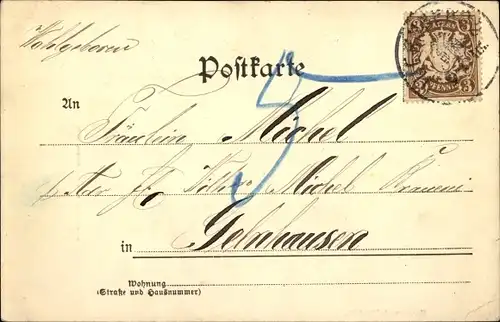 Wohlgeboren
Postkarte
3 3
PFENNIG
An
Fräulein Michel
Michel Brauerei
in Gelnhausen
Wohnung
(Straße und Hausnummer)